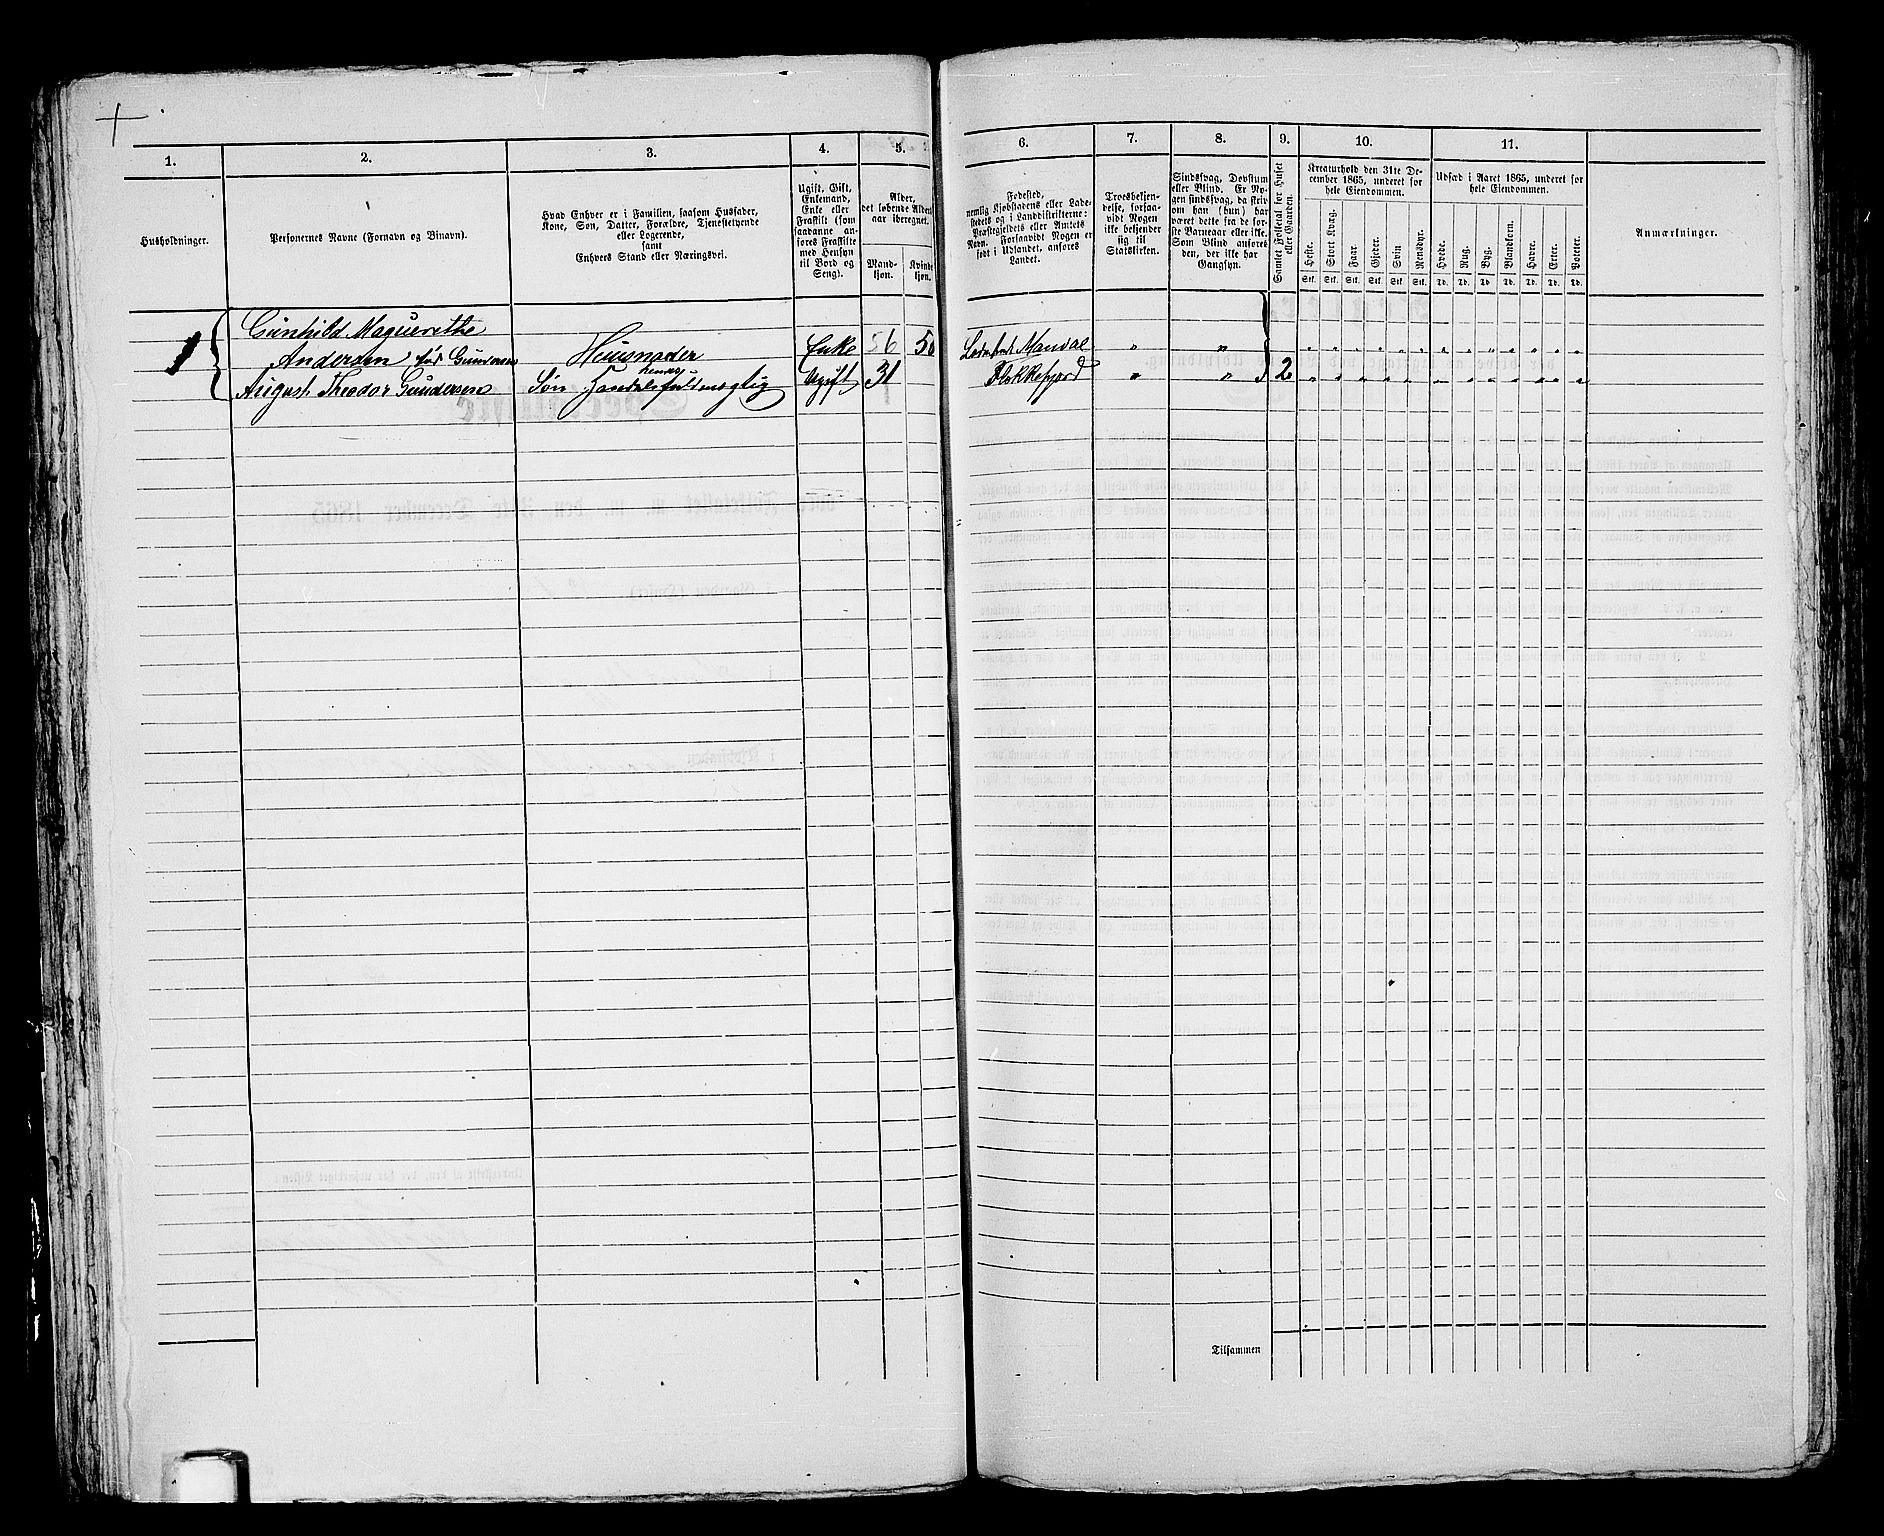 1. 2. 3. 4. 5. 6. 7. 8. 9. 10. 11.
Husholdninger.
Personernes Navne (Fornavn og Binavn).
Hvad Enhver er i Familien, saasom Husfader,
Kone, Søn, Datter, Forældre, Tjenestetyende
eller Logerende,
samt
Enhvers Stand eller Næringsvei.
Ugift, Gift,
Enkemand,
Enke eller
Fraskilt (som
saadanne an-
føres Fraskilte
med Hensyn
til Bord og
Seng).
Alder,
det løbende Alders-
aar iberegnet.
Mand-
kjøn.
Kvinde-
kjøn.
Fødested,
nemlig Kjøbstadens eller Lade-
stedets og i Landdistrikterne:
Præstegjeldets eller Amtets
Navn. Forsaavidt Nogen er
født i Udlandet, anføres
Landet.
Troesbekjen-
delse, forsaa-
vidt Nogen
ikke bekjender
sig til
Statskirken.
Sindssvag, Døvstum
eller Blind. Er No-
gen sindssvag, da skriv
om han (hun) har
været dette fra de for-
ste Barneaar eller ikke.
Som Blind anføres
den, der ikke har
Gangsyn.
Samlet Folketal for Huset
eller Gaarden.
Kreaturhold den 31te De-
cember 1865, underet for
hele Eiendommen.
Heste. Stort Kvæg. Faar. Gjeder. Svin Rensdyr.
Stk. Stk. Stk. Stk. Stk. Stk.
Udsæd i Aaret 1865, underet for
hele Eiendommen.
Hvede. Rug. Byg. Blandkorn. Havre. Erter. Poteter.
Td. Td. Td. Td. Td. Td. Td.
Anmærkninger.
Gunhild Maguerethe
1 Andersen, fød Gundersen Huusmoder Enke 56 Ladested Mandal " "
August Theodor Gundersen Søn Handelsfuldmægtig Ugift 31 Flekkefjord " " 2
Tilsammen